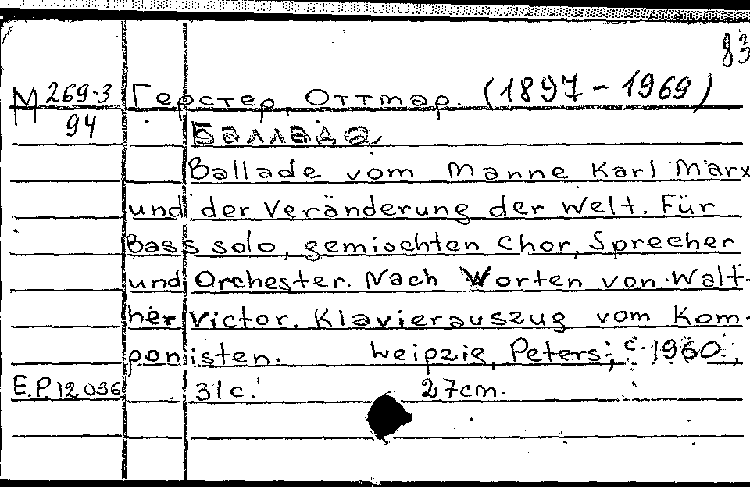 83
М 269-3 Герстер, Оттмар. (1897-1969)
94 Баллада
Ballade vom Manne Karl Marx
und der Veränderung der Welt. Für
Bass solo, gemischten Chor, Sprecher
und Orchester. Nach Worten von Walt-
her Victor. Klavierauszug vom Kom-
ponisten. Leipzig, Peters, c 1960.
E.P. 12036 31 с. 27cm.